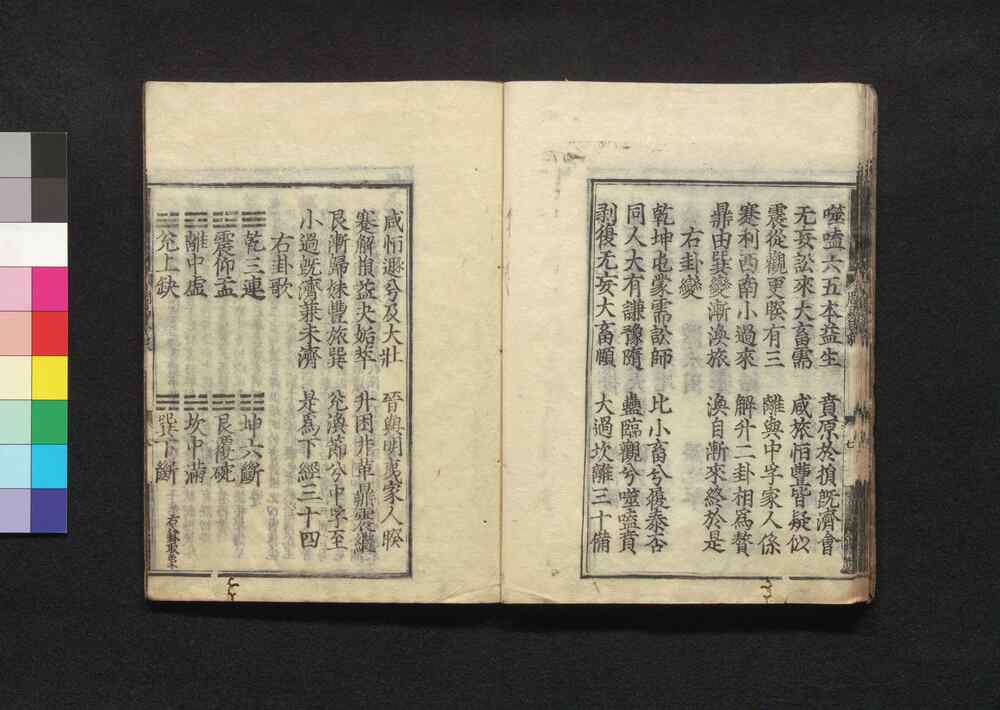 噬嗑六五本益生　賁原於損旣濟會
无妄訟來大畜需　咸旅恒豐皆疑似
震從觀更睽有三　離與中孚家人係
蹇利西南小過來　解升二卦相爲贅
鼎由巽變漸渙旅　渙自漸來終於是
右卦變
乾坤屯蒙需訟師　比小畜兮履泰否
同人大有謙豫隨　蠱臨觀兮噬嗑賁
剥復无妄大畜頤　大過坎離三十備
咸恒遯兮及大壯　晉與明夷家人睽
蹇解損益夬姤萃　升困井革鼎震繼
艮漸歸妹豐旅巽　兌渙節兮中孚至
小過旣濟兼未濟　是爲下經三十四
右卦歌
☰乾三連　☷坤六斷
☳震仰盂　☶艮覆碗
☲離中虛　☵坎中滿
☱兌上缺　☴巽下斷